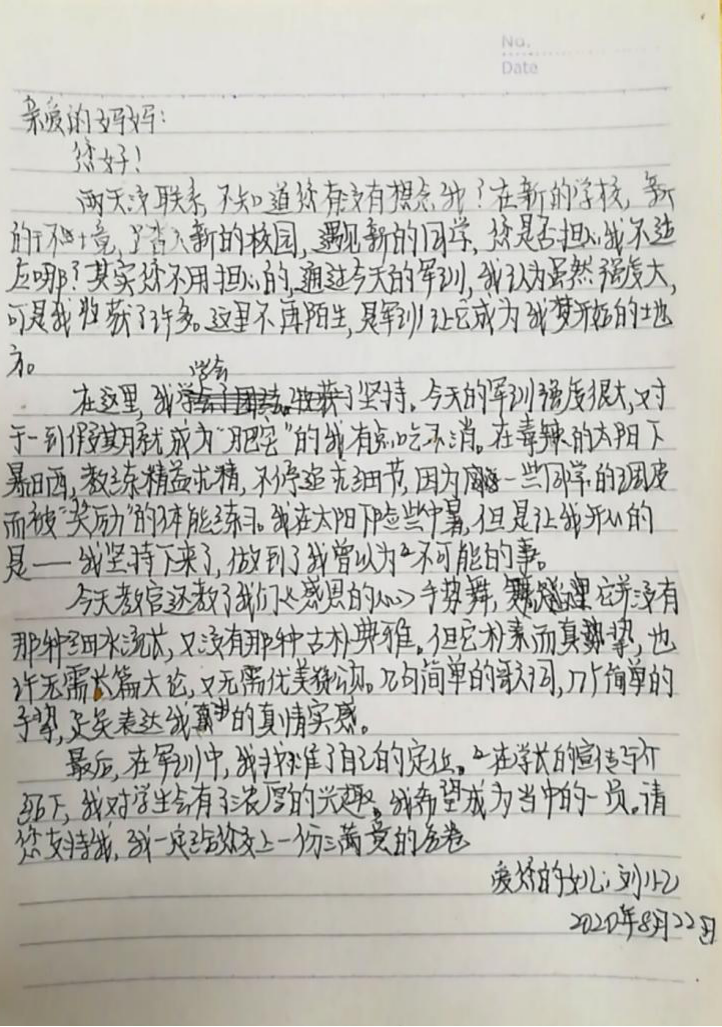 No.
Date
亲爱的妈妈：
您好！
两天没联系，不知道您有没有想念我？在新的学校，新
的环境，踏入新的校园，遇见新的同学，您是否担心我不适
应呢？其实您不用担心的，通过今天的军训，我认为虽然强度大，
可是我收获了许多。这里不再陌生，是军训让它成为我梦开始的地
方。
学会
在这里，我了坚持。今天的军训强度很大，对
于一到假期就成为“肥宅”的我有点吃不消。在毒辣的太阳下
暴晒，教练精益求精，不停追求细节，因为一些同学的调皮
而被“奖励”的体能练习。我在太阳下险些中暑，但是让我开心的
是——我坚持下来了，做到了我曾以为不可能的事。
今天教官还教了我们《感恩的心》手势舞，它并没有
那种细水流长，又没有那种古朴典雅。但它朴素而真挚，也
许无需长篇大论，又无需优美赞颂。几句简单的歌词，几个简单的
手势，足矣表达我的真情实感。
最后，在军训中，我找准了自己的定位。在学长的宣传与介
绍下，我对学生会有了浓厚的兴趣，我希望成为当中的一员。请
您支持我，我一定给您交上一份满意的答卷
爱您的女儿：刘
2020年8月22日